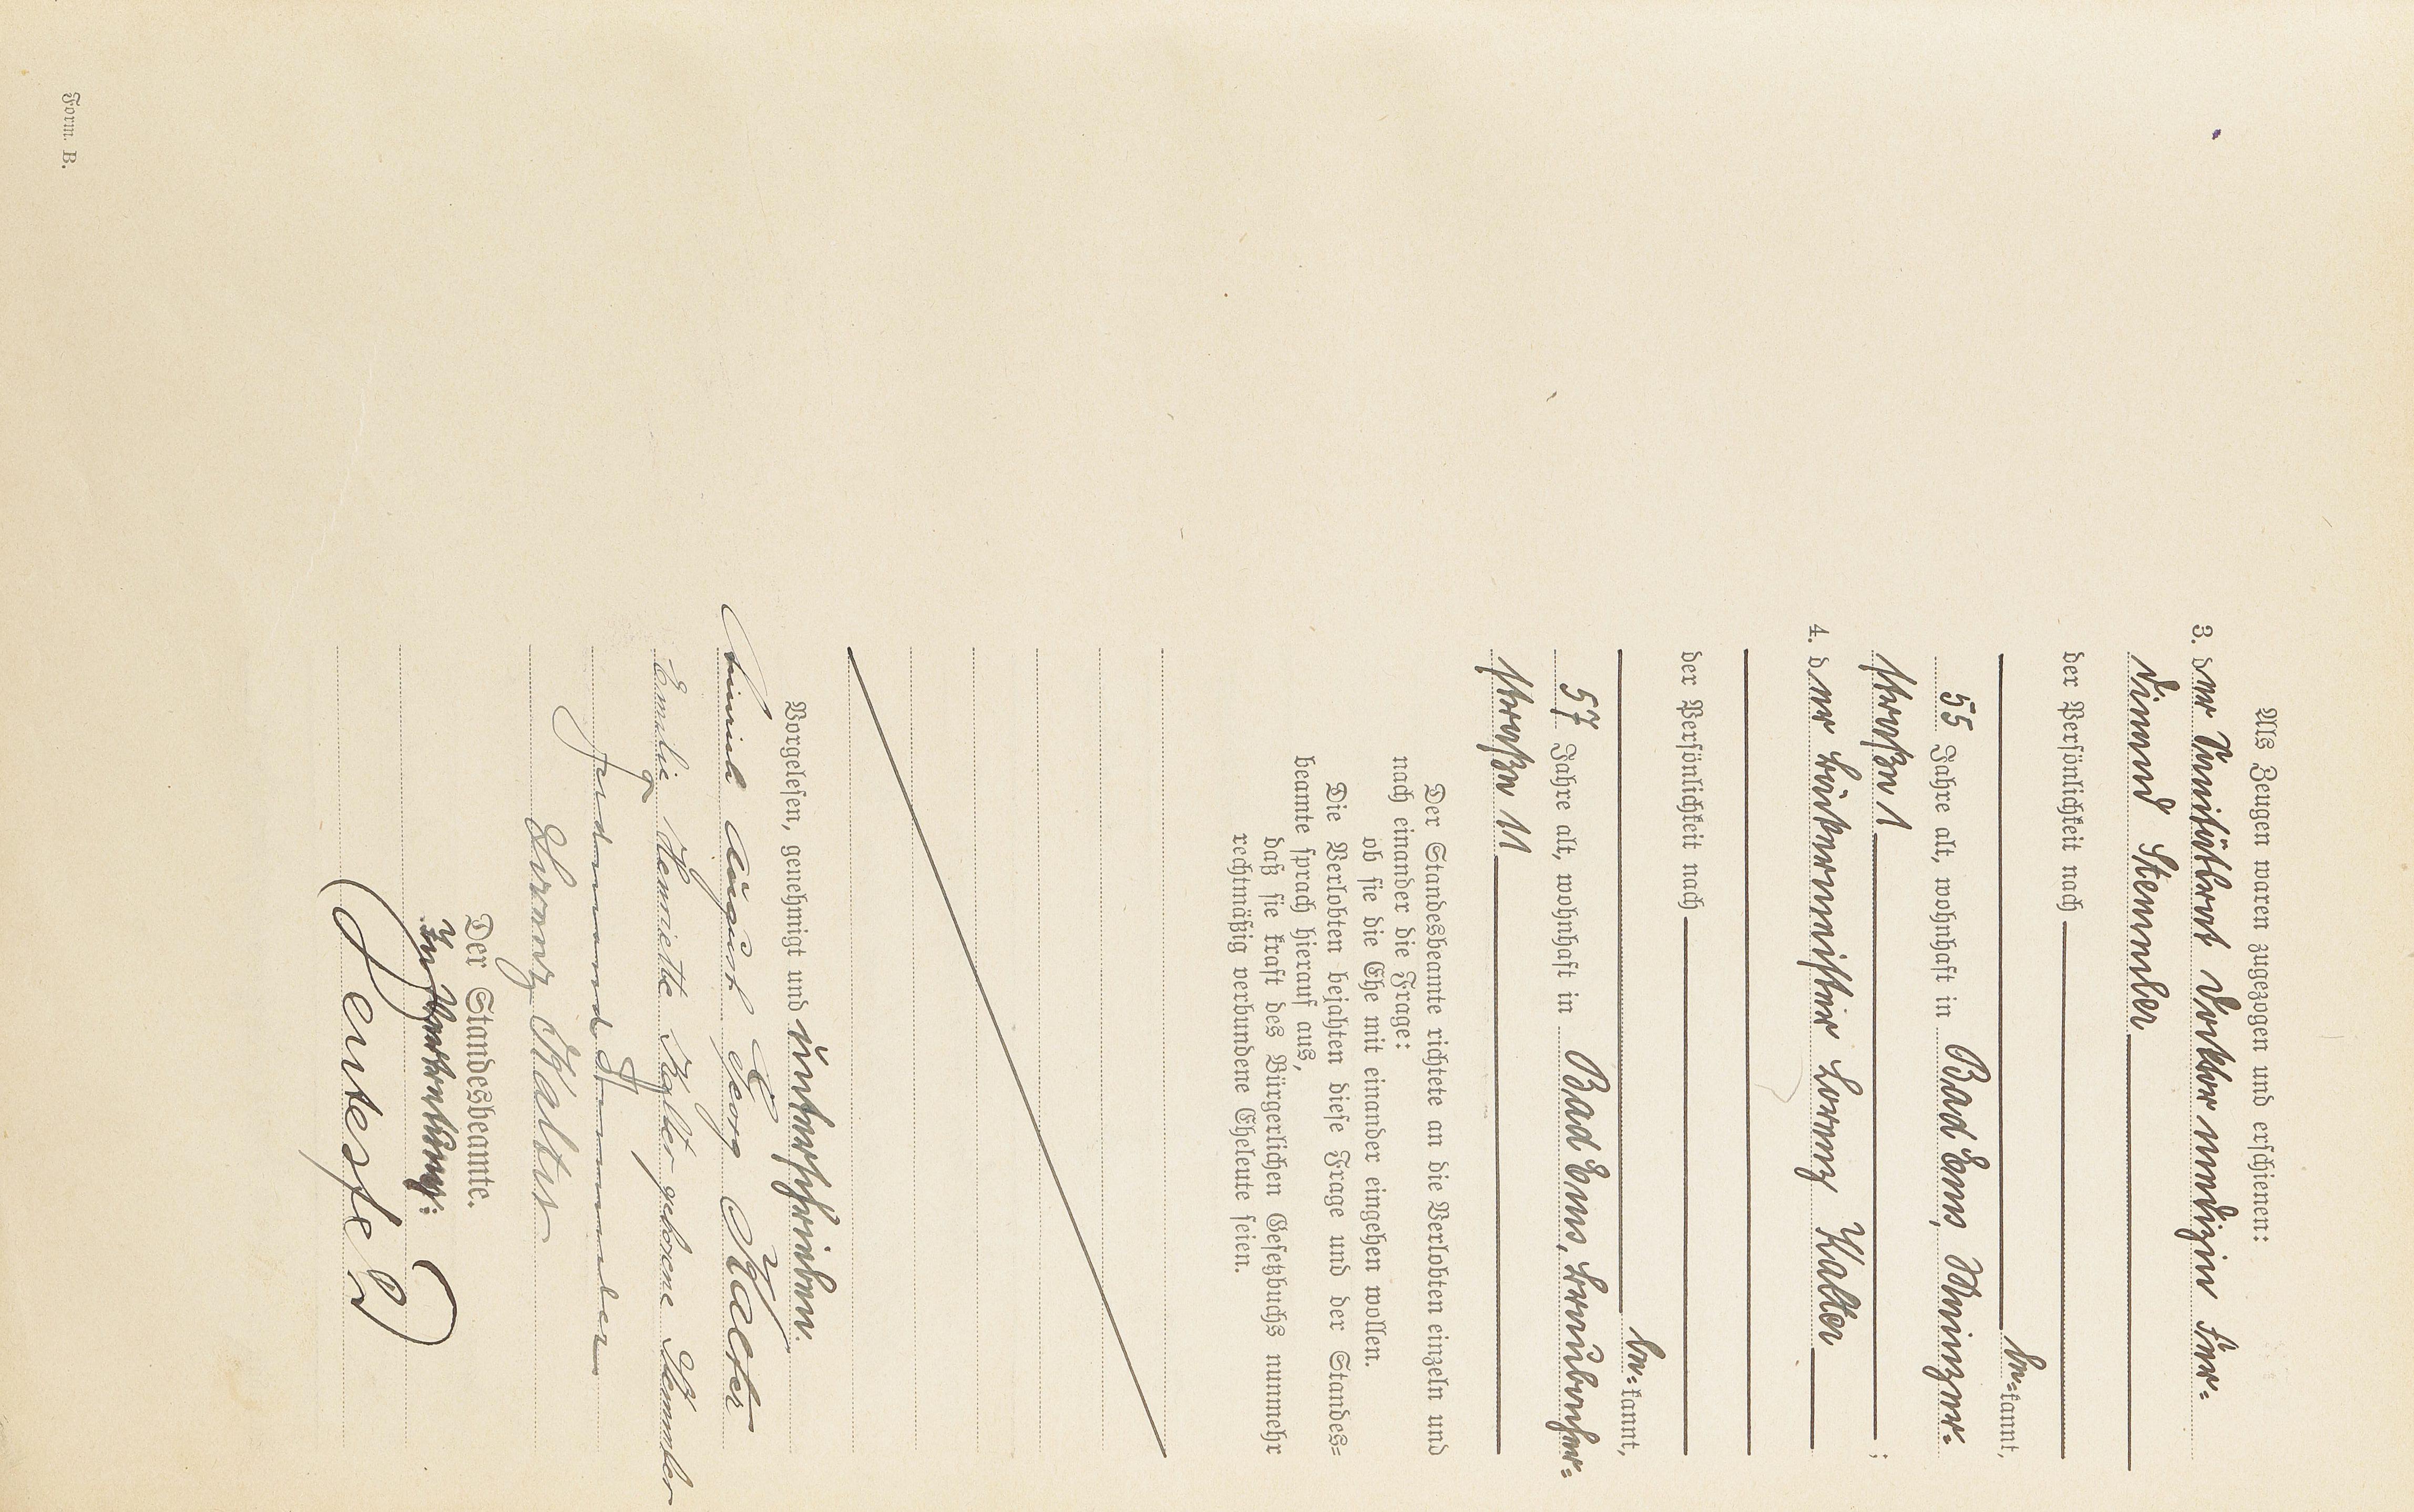 Als Zeugen waren zugezogen und erschienen:
3. der Sanitätsrat Doktor medizin Fer-
dinand Stemmler
der Persönlichkeit nach
be=kannt,
55 Jahre alt, wohnhaft in Bad Ems, Winzer-
straße 1 ;
4. der Bäckermeister Lorenz Kalter
der Persönlichkeit nach
be=kannt,
57 Jahre alt, wohnhaft in Bad Ems,
straße 11
Der Standesbeamte richtete an die Verlobten einzeln und
nach einander die Frage:
ob sie die Ehe mit einander eingehen wollen.
Die Verlobten bejahten diese Frage und der Standes=
beamte sprach hierauf aus,
daß sie kraft des Bürgerlichen Gesetzbuchs nunmehr
rechtmäßig verbundene Eheleute seien.
Vorgelesen, genehmigt und unterschrieben.
August Georg Kalter
Emilie Henriette Kalter geborene Stemmler
Ferdinand Stemmler
Lorenz Kalter
Der Standesbeamte.
In Vertretung:
Form. B.